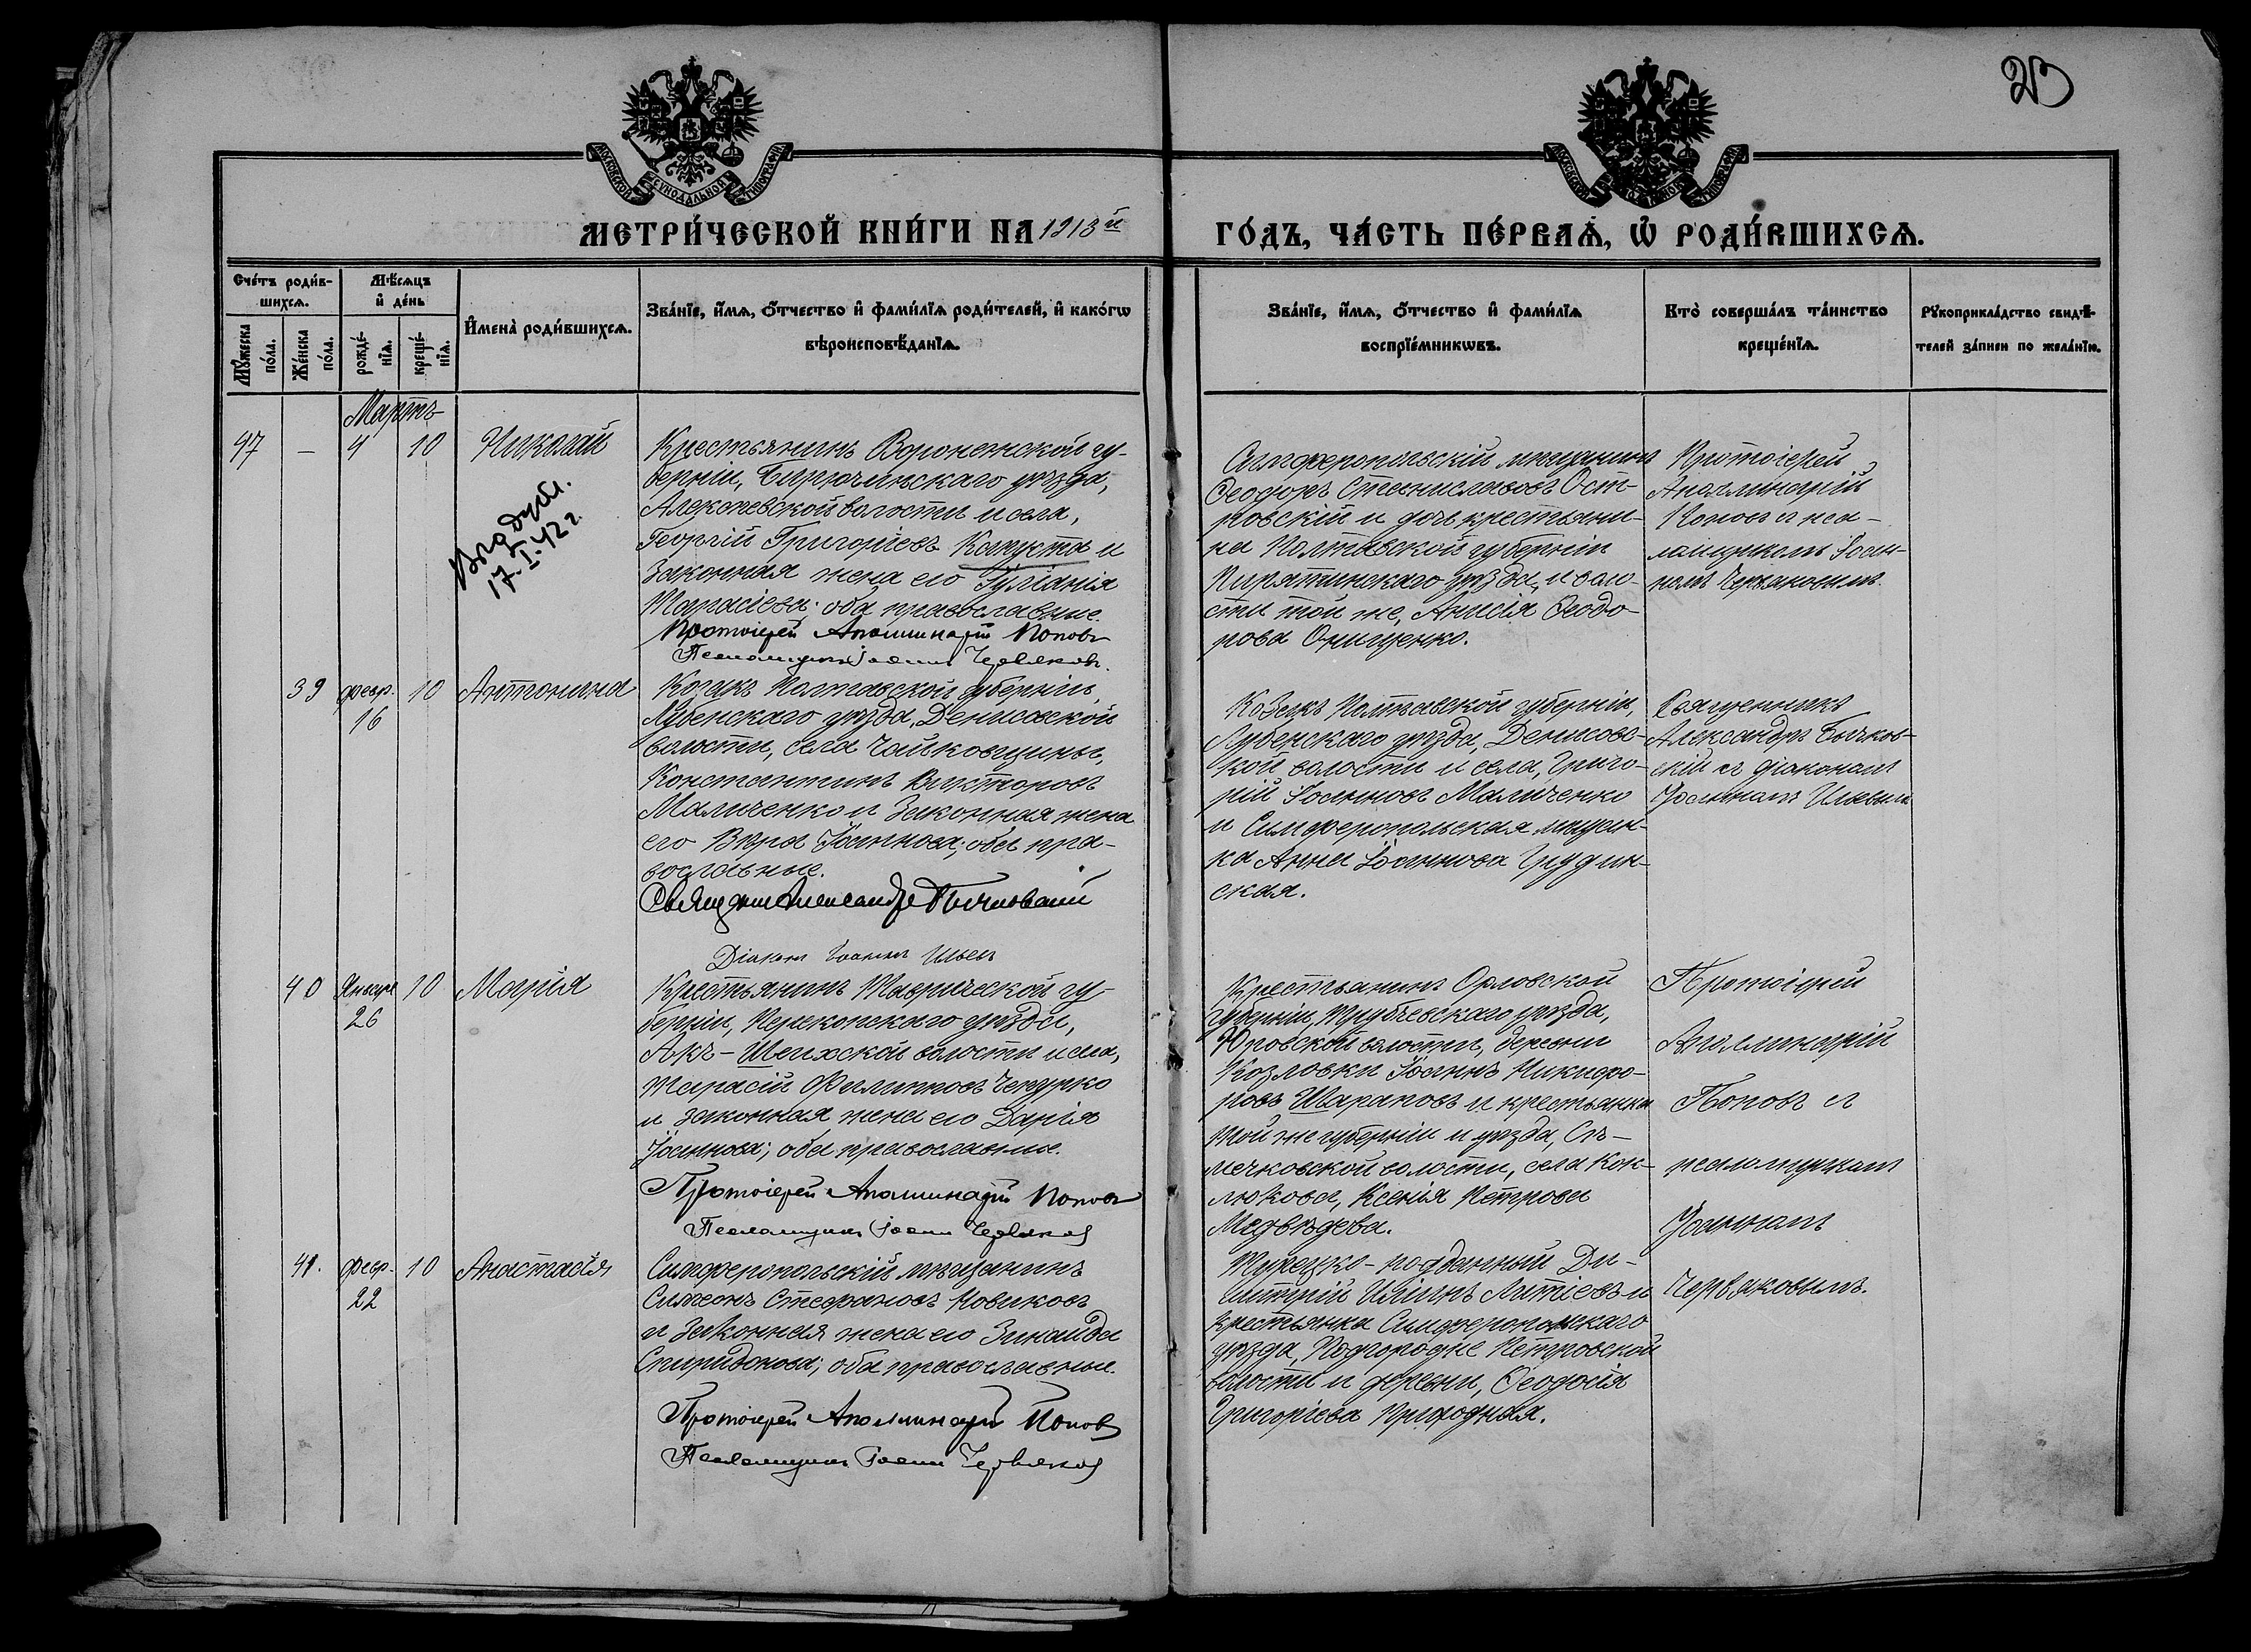 23
МОСКОВСКОЙ СѴНОДАЛЬНОЙ ТИПОГРАФІИ
МЕТРИ́ЧЕСКОЙ КНИ́ГИ НА 1913й ГО́ДЪ, ЧА́СТЬ ПЕ́РВАѦ, Ѡ РОДИ́ВШИХСѦ.
Сче́тъ роди́в-
шихсѧ.
Мꙋ́жеска
по́ла.
Же́нска
по́ла.
Мѣ́сѧцъ
и҆ де́нь
рожде́-
нїѧ.
креще́-
нїѧ.
И҆мена̀ роди́вшихсѧ.
Зва́нїе, и҆́мѧ, ѻ҆́тчество и҆ фами́лїѧ роди́телей, и҆ како́гѡ
вѣроисповѣ́данїѧ.
Зва́нїе, и҆́мѧ, ѻ҆́тчество и҆ фами́лїѧ
воспрїе́мникѡвъ.
Кто̀ соверша́лъ та́инство
креще́нїѧ.
Рꙋкоприкла́дство свидѣ́-
телей за́писи по жела́нїю.
Мартъ
47 — 4 10 Николай
Выд. дубл.
17.I.42 г.
Крестьянинъ Воронежской гу-
берніи, Бирюченскаго уѣзда,
Алексеевской волости и села,
Георгій Григоріевъ Капуста и
законная жена его Іуліанія
Тарасіева; оба православные.
Протоіерей Аполлинарій Поповъ
Псаломщикъ Іоаннъ Червяковъ.
Симферопольскій мѣщанинъ
Ѳеодоръ Станиславовъ Ост-
ровскій и дочь крестьяни-
на Полтавской губерніи
Пирятинскаго уѣзда, и воло-
сти той же, Анисія Ѳеодо-
рова Онищенко.
Протоіерей
Аполлинарій
Поповъ съ пса-
ломщикомъ Іоан-
номъ Червяковымъ.
39 февр. 16 10 Антонина
Козакъ Полтавской губерніи,
Лубенскаго уѣзда, Денисовской
волости, села Чайковщины,
Константинъ Викторовъ
Мальченко и законная жена
его Вѣра Іоаннова; оба пра-
вославные.
Священникъ Александръ Бычковскій
Діаконъ Іоаннъ Ильинъ
Козакъ Полтавской губерніи,
Лубенскаго уѣзда, Денисовс-
кой волости и села, Григо-
рій Іоанновъ Мальченко
и Симферопольская мѣщан-
ка Анна Іоаннова Грудин-
ская.
Священникъ
Александръ Бычков-
скій съ діакономъ
Іоанномъ Ильинымъ
40 Января 26 10 Марія
Крестьянинъ Таврической гу-
берніи, Перекопскаго уѣзда,
Акъ-Шеихской волости и села,
Тарасій Филипповъ Чепурко
и законная жена его Дарія
Іоаннова; оба православные.
Протоіерей Аполлинарій Поповъ
Псаломщикъ Іоаннъ Червяковъ
Крестьянинъ Орловской
губерніи, Трубчевскаго уѣзда,
Юровской волости, деревни
Козловки Іоаннъ Никифо-
ровъ Шараповъ и крестьянка
той же губерніи и уѣзда, Съ-
мечковской волости, села Кок-
люкова, Ксенія Петрова
Медвѣдева.
Протоіерей
Аполлинарій
Поповъ съ
псаломщикомъ
Іоанномъ
Червяковымъ.
41. февр. 22 10 Анастасія
Симферопольскій мѣщанинъ
Симеонъ Стефановъ Новиковъ
и законная жена его Зинаида
Спиридонова; оба православные.
Протоіерей Аполлинарій Поповъ
Псаломщикъ Іоаннъ Червяковъ
Турецко-подданный Ди-
митрій Иліинъ Литіевъ и
крестьянка Симферопольскаго
уѣзда, Подгородне Петровской
волости и деревни, Ѳеодосія
Григоріева Пригодная.